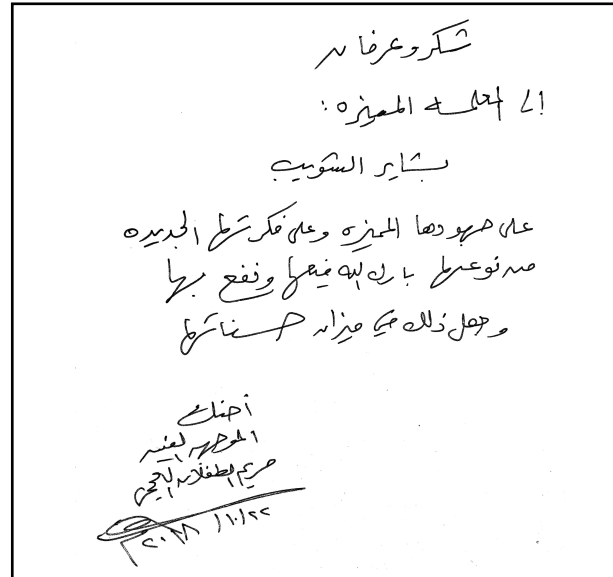 شكر وعرفان
إلى المعلمه المميزه :
بشاير الشويب
على جهودها المميزه وعلى فكرتها الجديده
من نوعها بارك الله فيها ونفع بها
وجعل ذلك في ميزان حسناتها
أختك
الموجهه الفنيه
مريم الطفلان العجمي
٢٠١٨/١٠/٢٢